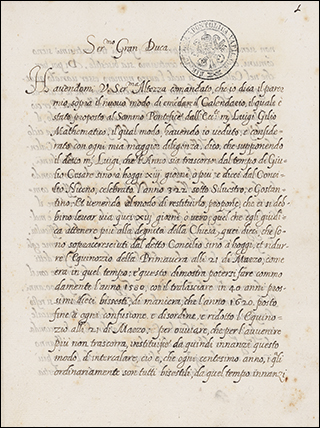 Ser.mo Gran Duca.
Havendomi V. Ser.ma Altezza comandato, che io dica il parer
mio, sopra il nuovo modo di emendare il Calendario, il quale è
stato proposto al Sommo Pontefice dall'Ecc.te m. Luigi Gilio
Mathematico, il qual modo, havendo io veduto, e conside-
rato con ogni mia maggior diligenza, dico, che supponendo
il detto m. Luigi, che l'Anno sia trascorso dal tempo di Giu-
lio Cesare sino a hoggi XIIJ. giorni, a pur e dieci dal Conci-
lio Niceno, celebrato l'anno 322 sotto Silvestro, e Gostan-
tino, Et venendo al modo di restituirlo, propone, che ci si deb-
bino levar via quei XIIJ giorni, o vero, quel che egli giudi-
ca attenere più alla degnità della Chiesa, quei dieci, che so-
no sopraccresciuti dal detto Concilio sino a hoggi, et ridur-
re l'Equinozio della Primavera alli 21 di Marzo, come
era in quel tempo, e questo dimostra potersi fare commo-
damente l'anno 1580, con il tralasciare in 40 anni pros-
simi dieci bisesti, di maniera, che l'anno 1620, posto
fine a ogni confusione, e disordine, e ridotto l'Equino-
zio alli 21 di Marzo, e per ovviare, che per l'avvenire
più non trascorra, instituisce da quindi innanzi questo
modo di intercalare, ciò è, che ogni centesimo anno, i quali
ordinariamente son tutti bisestili, da quel tempo innanzi